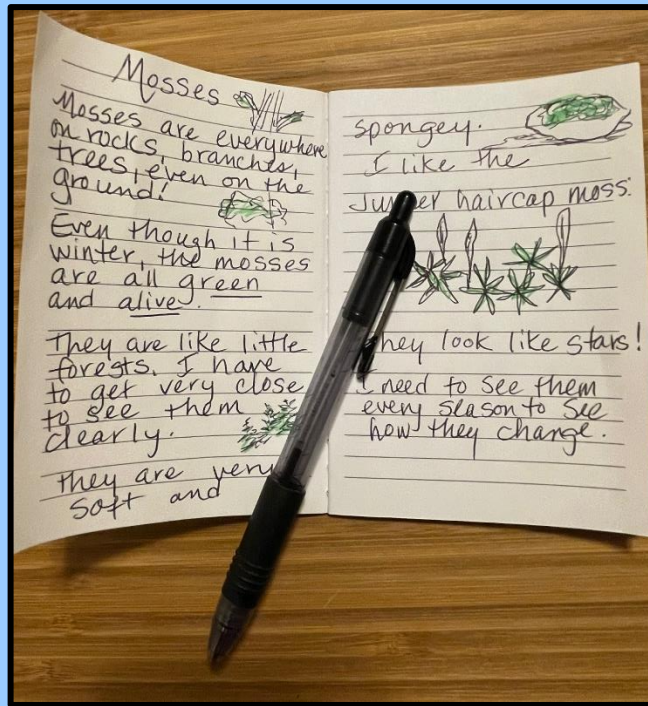 Mosses
Mosses are everywhere
on rocks, branches,
trees, even on the
ground!
Even though it is
winter, the mosses
are all green
and alive.
They are like little
forests. I have
to get very close
to see them
clearly.
They are very
soft and
spongey.
I like the
haircap moss:
They look like stars!
I need to see them
every season to see
how they change.